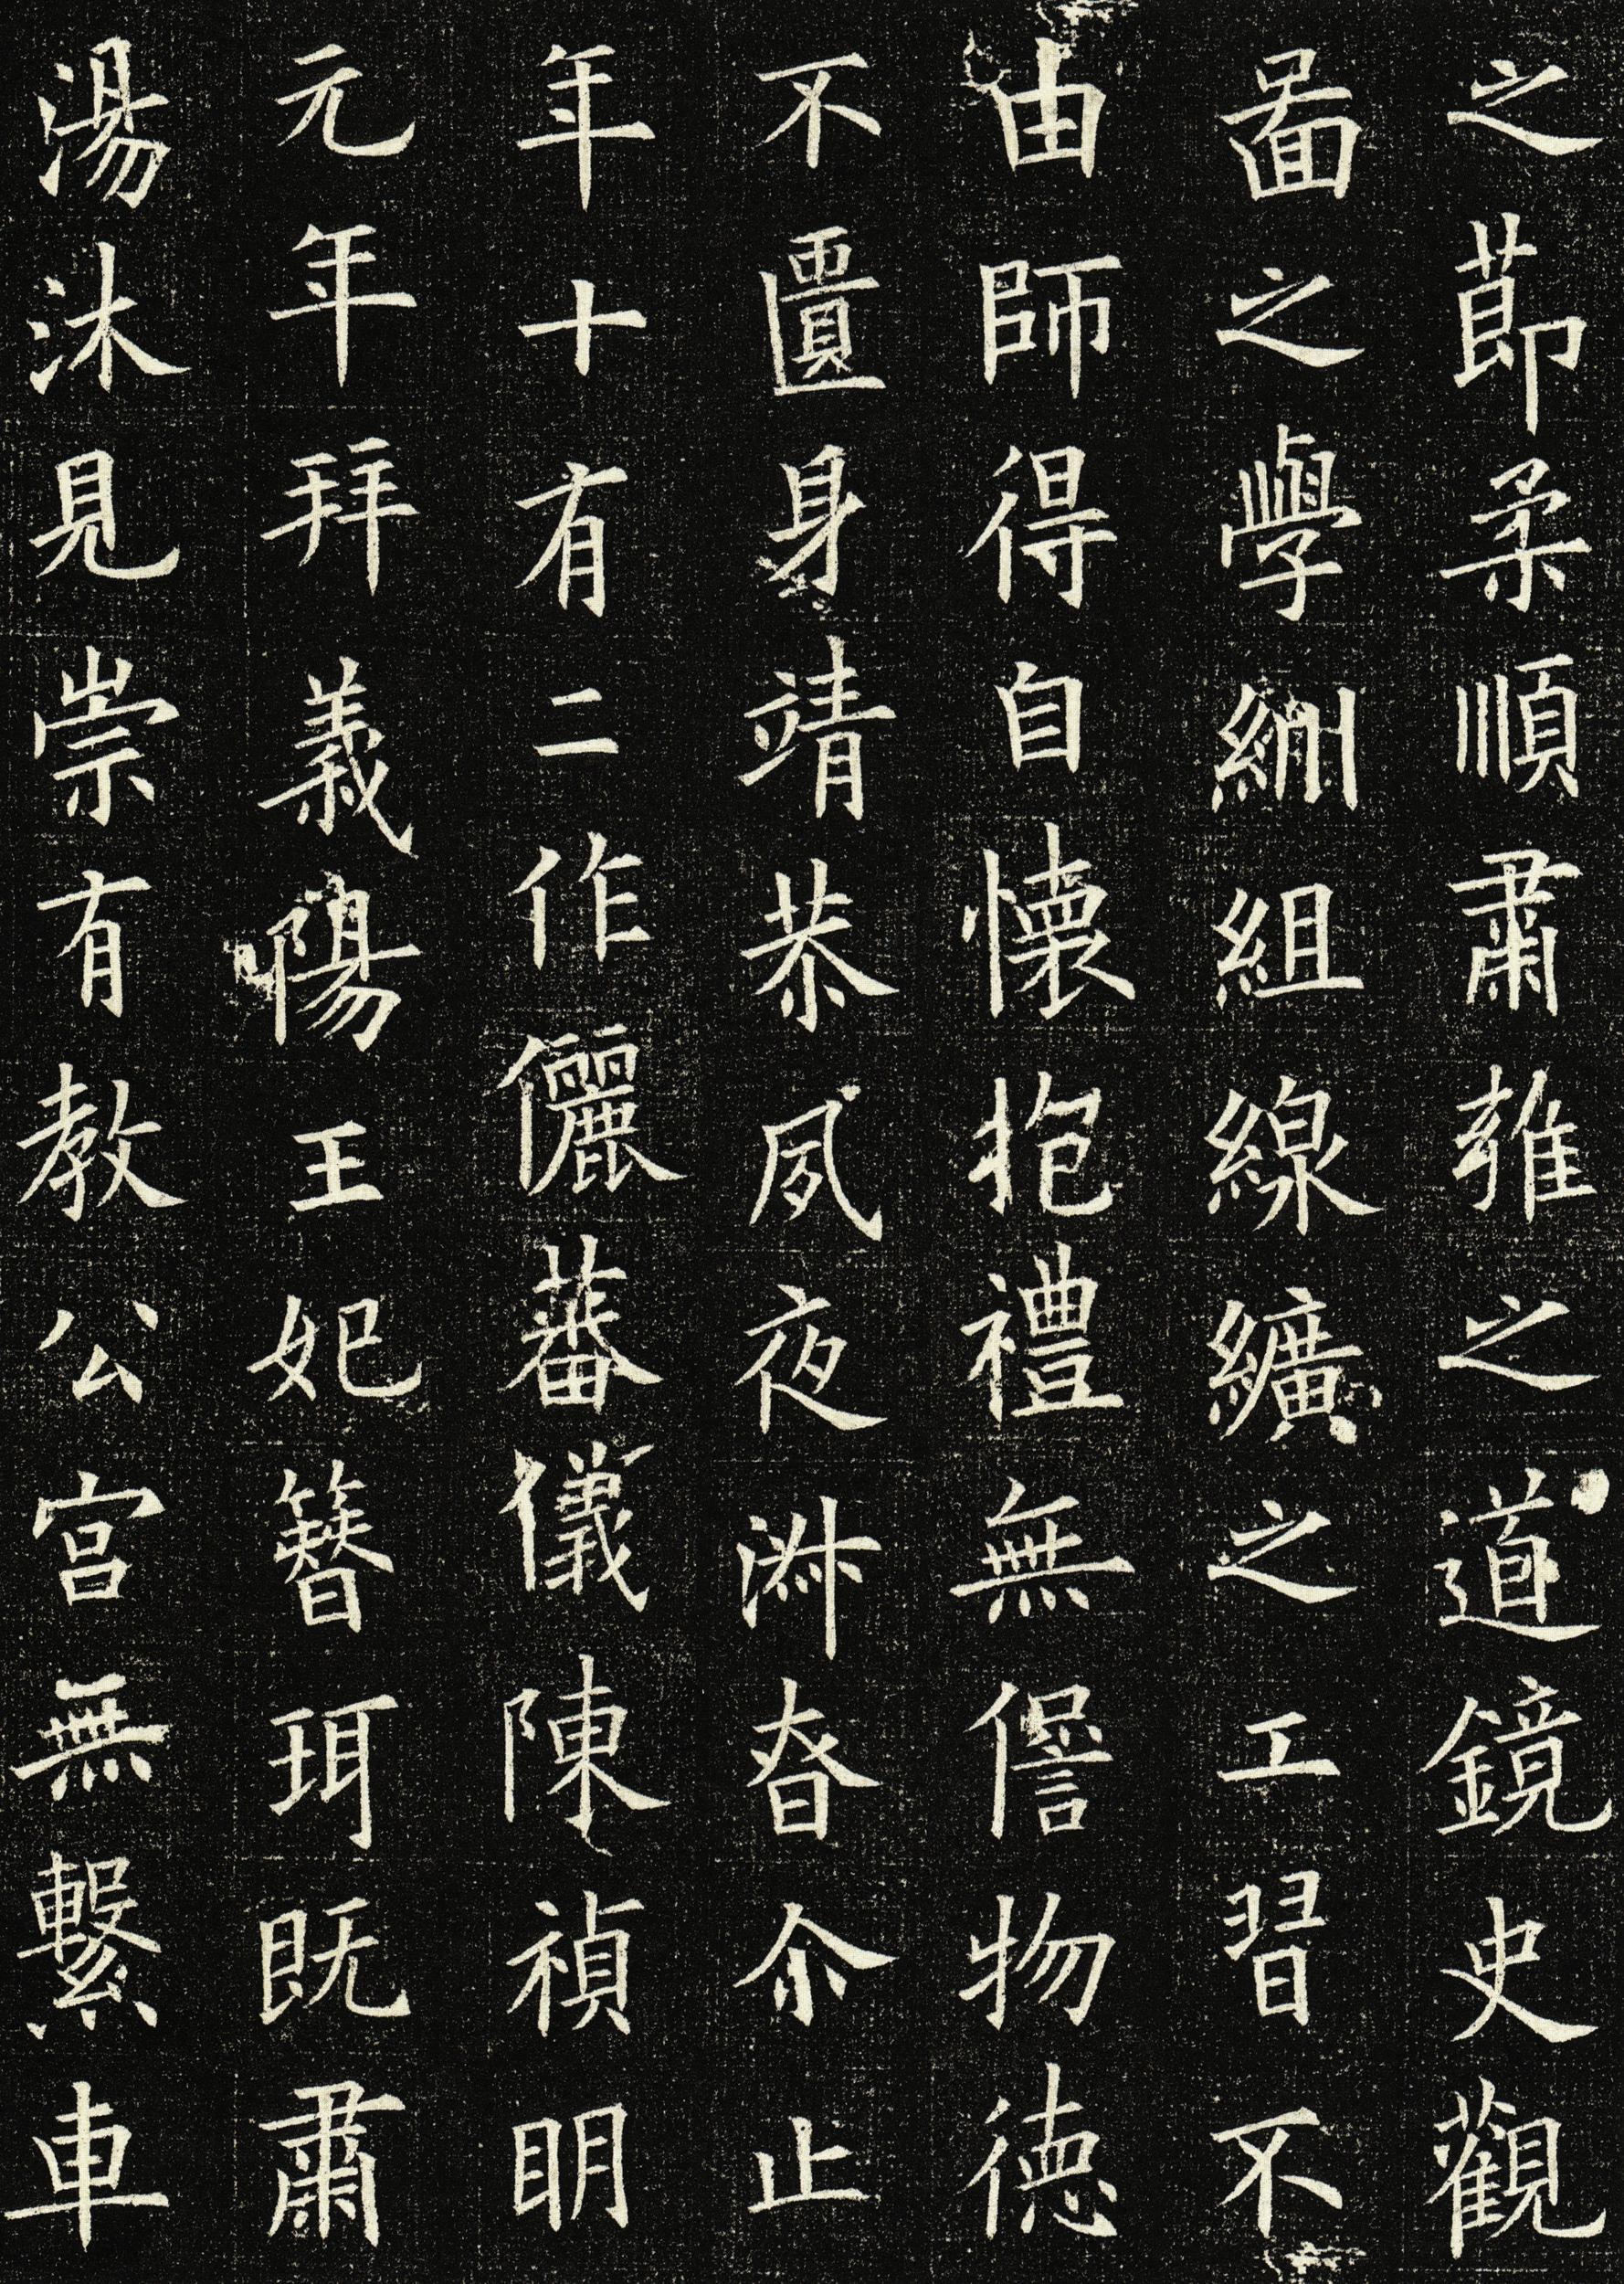 之莭柔順肅雍之道鏡史觀
啚之學紃組線纊之工習不
由師得自懷抱禮無僁物德
不匱身靖恭夙夜淑昚尒止
年十有二作儷蕃儀陳禎明
元年拜義陽王妃簪珥既肅
湯沐見崇有教公宫無繫車